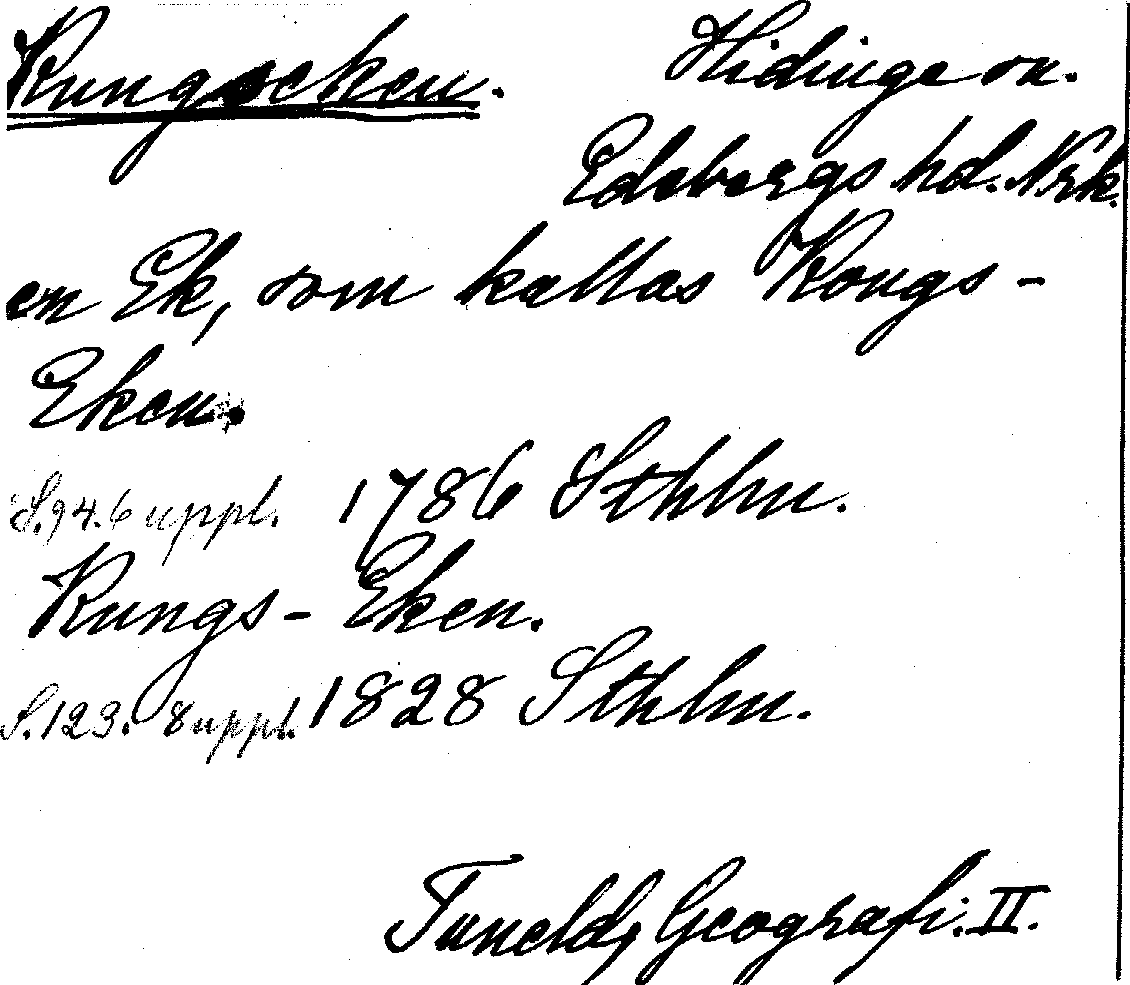 Kungseken.
Hidinge sn.
Edsbergs hd. Nrk.
en Ek, som kallas Kongs-
Eken.
S.94. 6 uppl. 1786 Sthlm.
Kungs-Eken.
S.123. 8 uppl. 1828 Sthlm.
Tuneld, Geografi. II.